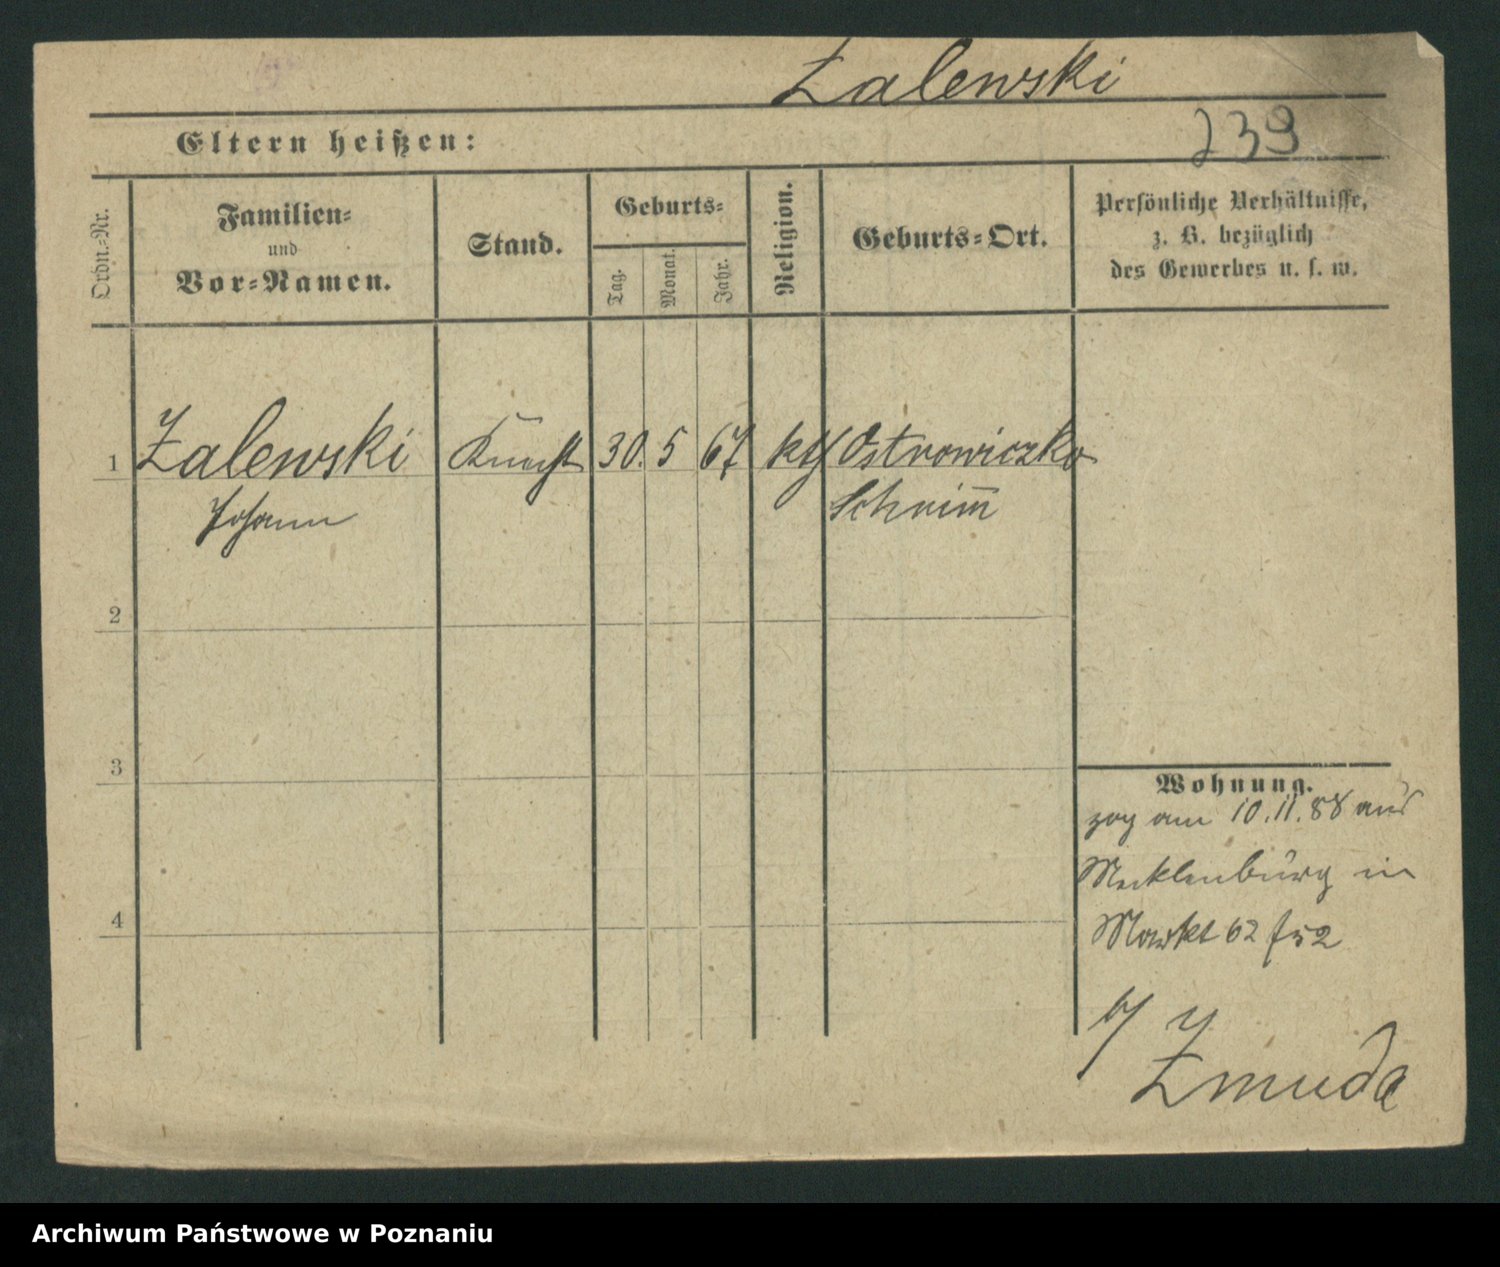 Zalewski
239
Eltern heißen:
Ordn.-Nr.
Familien- und Vor-Namen.
Stand.
Geburts-
Tag.
Monat.
Jahr.
Religion.
Geburts-Ort.
Persönliche Verhältnisse,
z. B. bezüglich
des Gewerbes u. s. w.
1 Zalewski Knecht 30. 5 67 kth Ostrowiczko
Johann Schrim̄
2
3
4
Wohnung.
zog am 10.11.88 aus
Mecklenburg in
Markt 62
b/
Zmuda
Archiwum Państwowe w Poznaniu